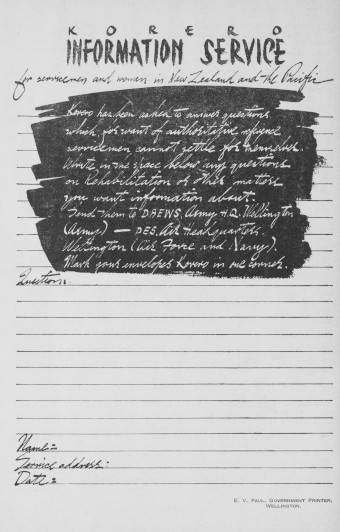 KORERO
INFORMATION SERVICE
for servicemen and women in New Zealand and the Pacific
Korero has been asked to answer questions
which for want of authoritative reference
servicemen cannot settle for themselves.
Write in the space below any questions
on Rehabilitation or other matters
you want information about.
Send them to DAEWS, Army H.Q. Wellington
(Army) — DES. Air Headquarters.
Wellington (Air Force and Navy).
Mark your envelopes Korero in one corner.
Question:
Name:
Service address:
Date:
E. V. PAUL, GOVERNMENT PRINTER,
WELLINGTON.